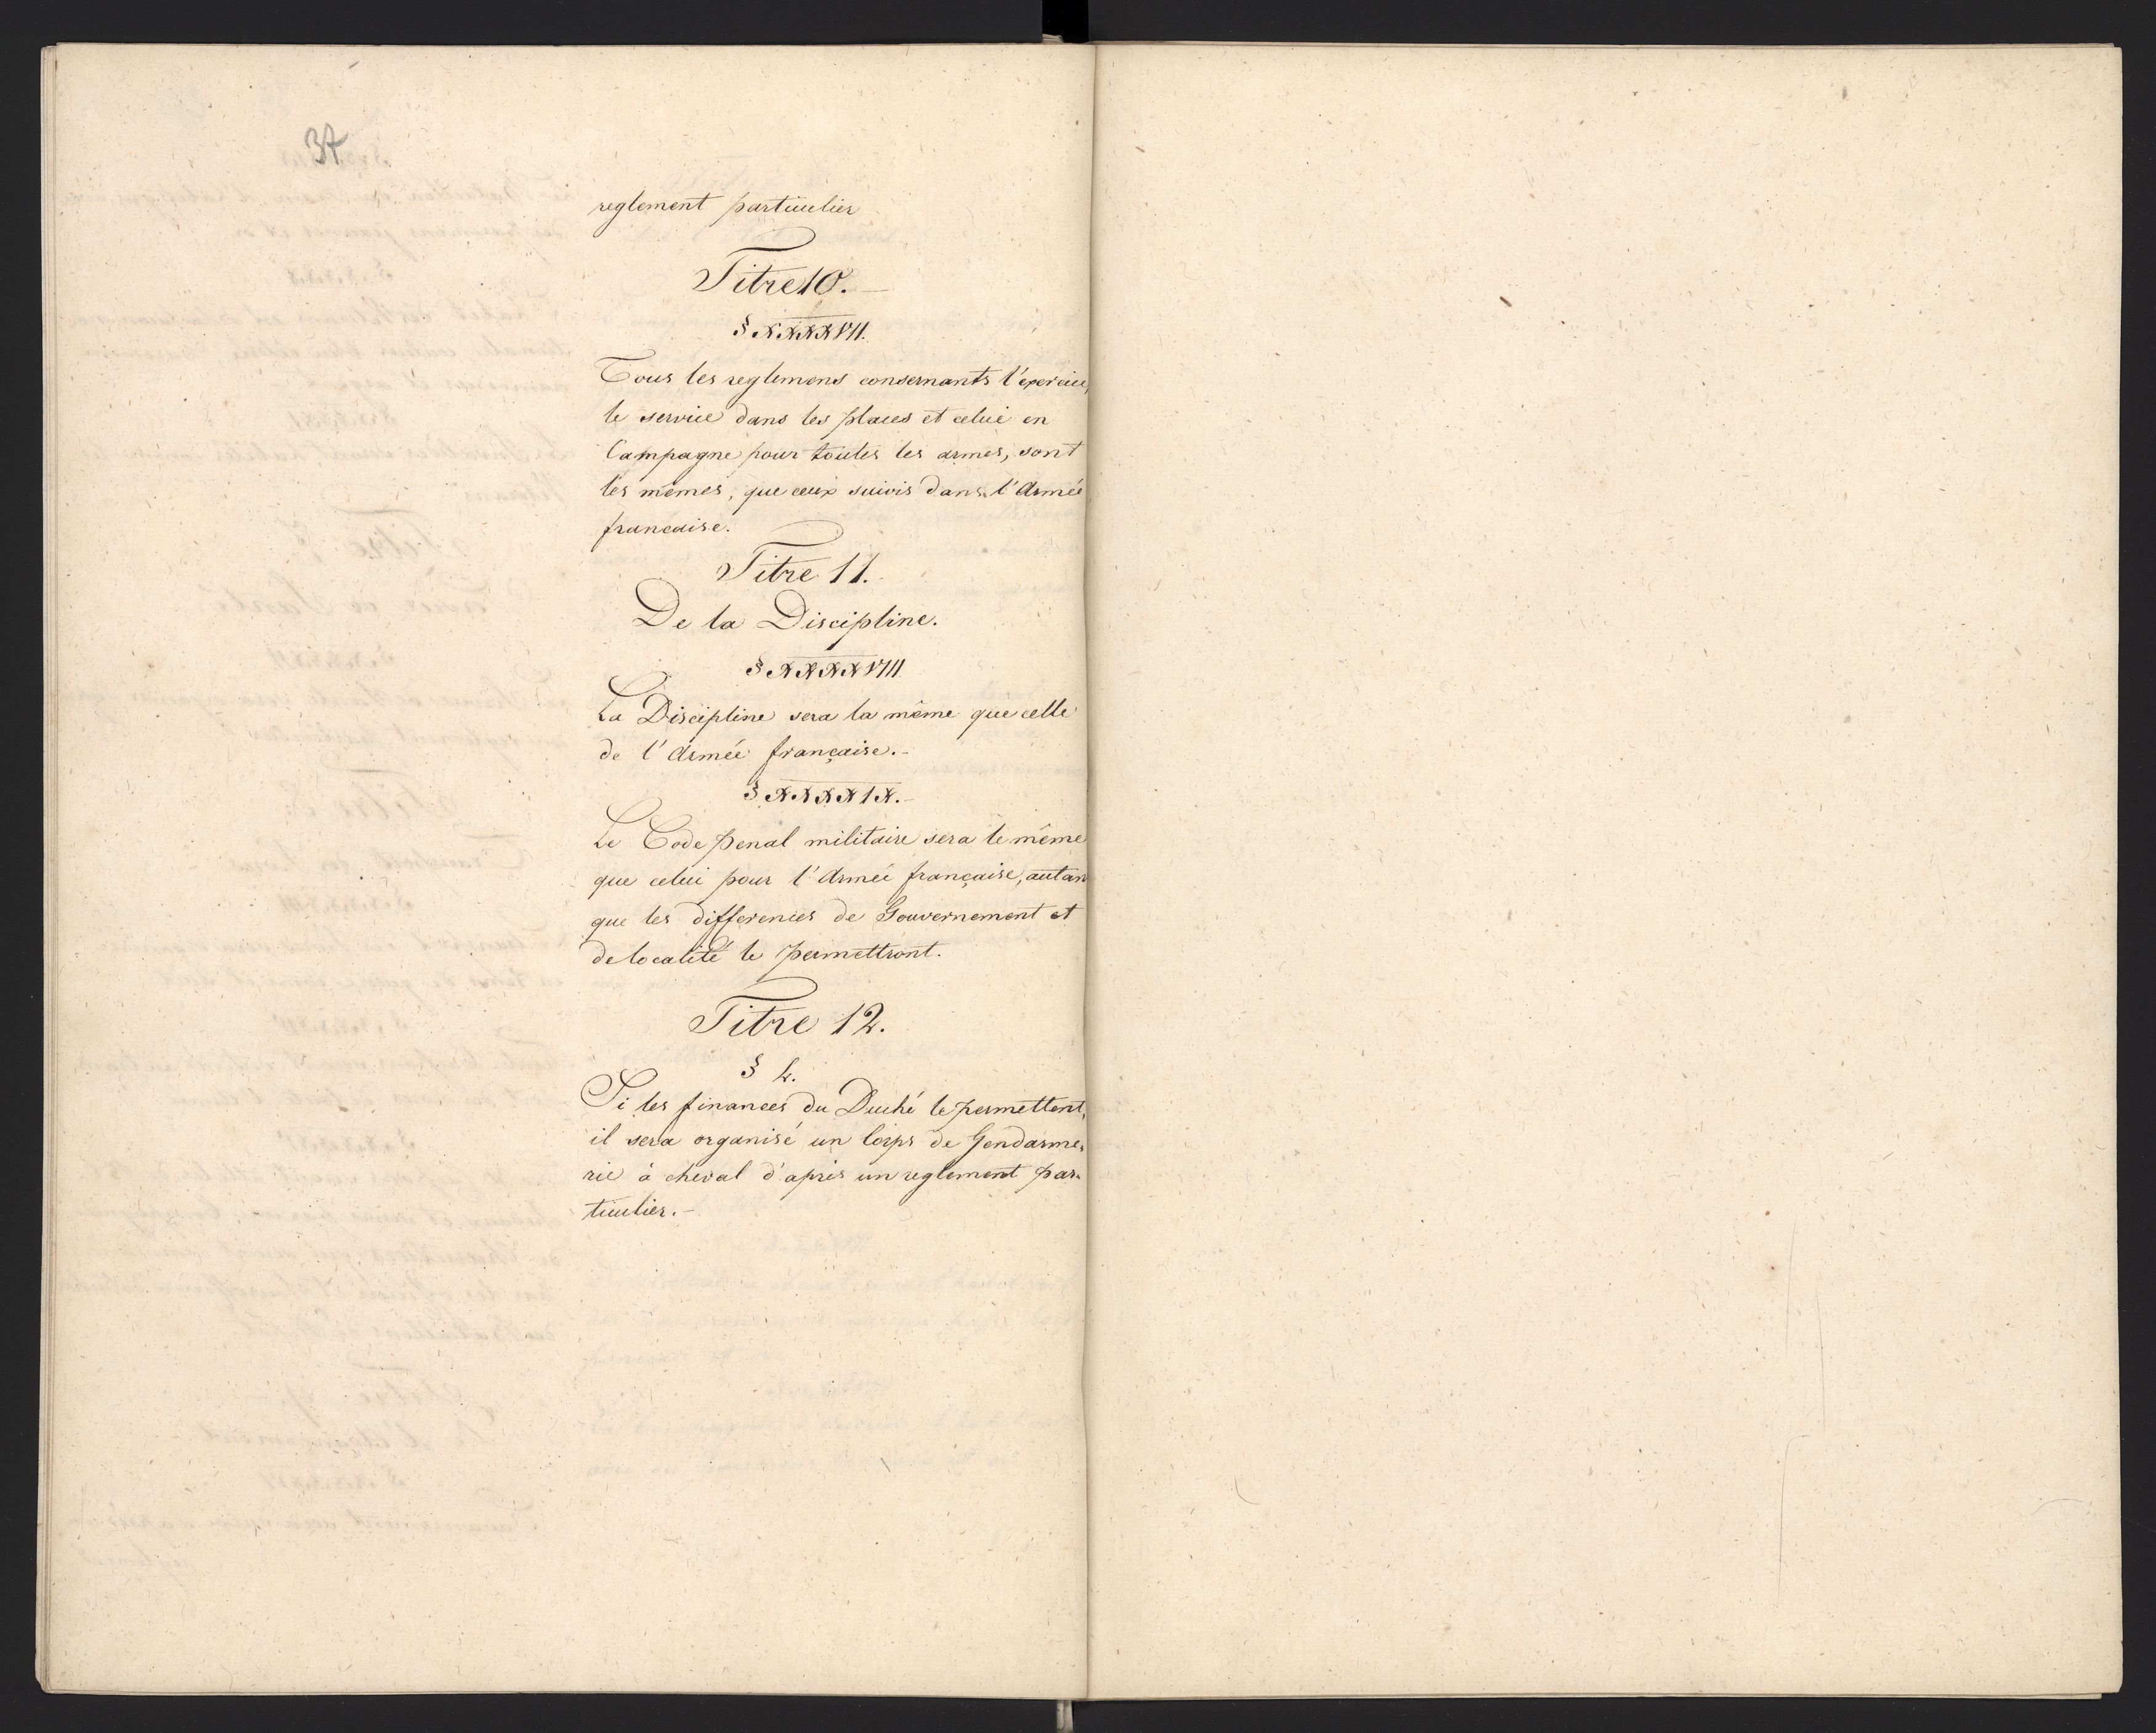 37
reglement particulier
Titre 10.
§ XXXXVII.
Tous les reglemens consernants l'exercice,
le service dans les places et celui en
Campagne pour toutes les armes, sont
les mêmes, que ceux suivis dans l'Armée
francaise.
Titre 11.
De la Discipline.
§ XXXXVIII
La Discipline sera la même que celle
de l'Armée française.-
§ XXXXIX.-
Le Code penal militaire sera le même
que celui pour l'Armée française, autan
que les differences de Gouvernement et
de localité le permettront.
Titre 12.
§ L.
Si les finances du Duché le permettent,
il sera organisé un Corps de Gendarme-
rie à cheval d'après un reglement par-
ticulier.-